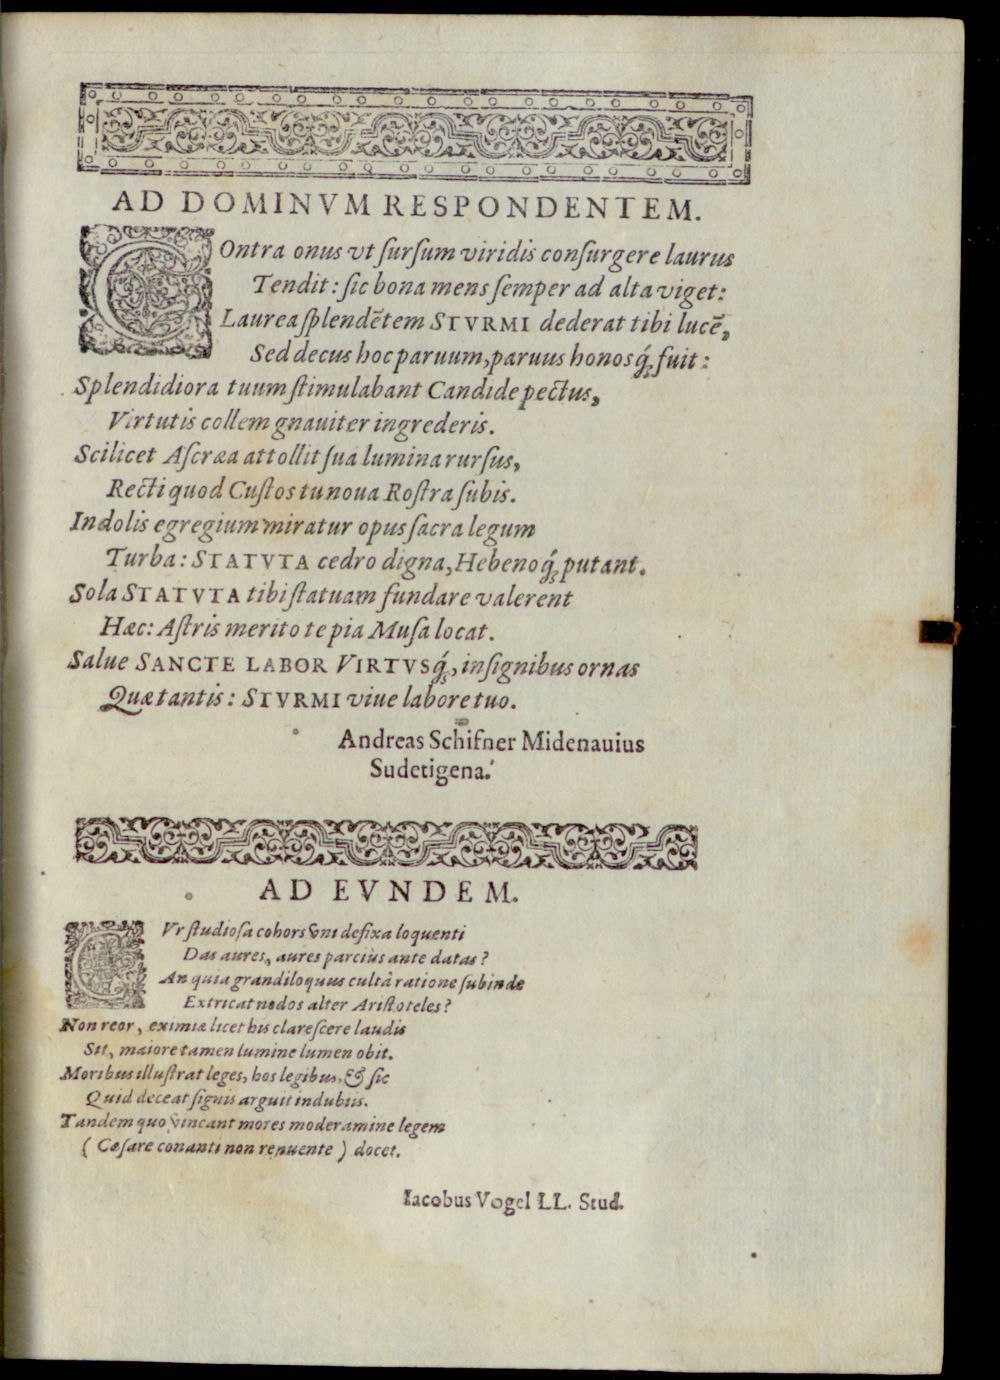 AD DOMINVM RESPONDENTEM.
COntra onus vt ſurſum viridis conſurgere laurus
Tendit: ſic bona mens ſemper ad alta viget:
Laurea ſplendētem STVRMI dederat tibi lucē,
Sed decus hoc paruum, paruus honosq́; fuit:
Splendidiora tuum ſtimulabant Candide pectus,
Virtutis collem gnauiter ingrederis.
Scilicet Aſcræa attollit ſua lumina rurſus,
Recti quod Cuſtos tu noua Roſtra ſubis.
Indolis egregium miratur opus ſacra legum
Turba: STATVTA cedro digna, Hebenoq́; putant.
Sola STATVTA tibi ſtatuam fundare valerent
Hæc: Aſtris merito te pia Muſa locat.
Salue SANCTE LABOR VIRTVSq́;, inſignibus ornas
Quæ tantis: STVRMI viue labore tuo.
Andreas Schifner Midenauius
Sudetigena.
AD EVNDEM.
CVr ſtudioſa cohors vni defixa loquenti
Das aures, aures parcius ante datas?
An quia grandiloquus cultâ ratione ſubinde
Extricat nodos alter Ariſtoteles?
Non reor, eximiæ licet his clareſcere laudis
Sit, maiore tamen lumine lumen obit.
Moribus illuſtrat leges, hos legibus, & ſic
Quid deceat ſignis arguit indubiis.
Tandem quo vincant mores moderamine legem
(Cæſare conanti non renuente) docet.
Iacobus Vogel LL. Stud.